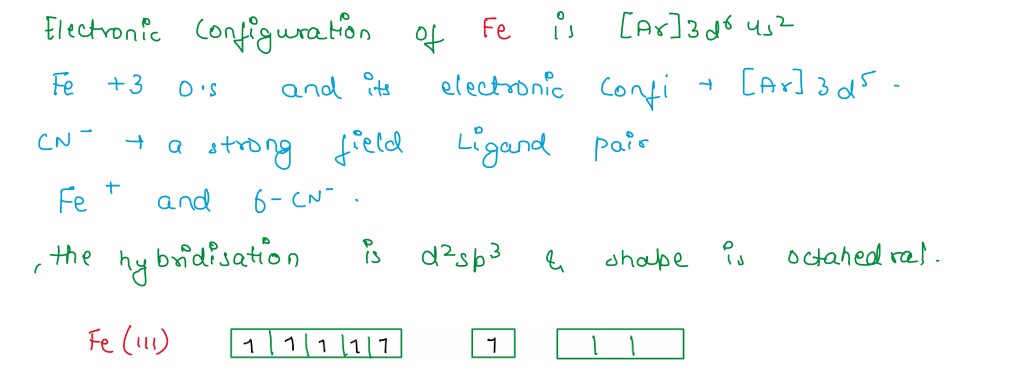 Electronic Configuration of Fe is [Ar]3d⁶ 4s²
Fe +3 O.S and its electronic Confi → [Ar] 3d⁵ .
CN⁻ → a strong field Ligand pair
Fe⁺ and 6-CN⁻ .
, the hybridisation is d²sp³ & shape is octahedral.
Fe (III) 1 | 1 | 1 | 1 | 1 1 | |